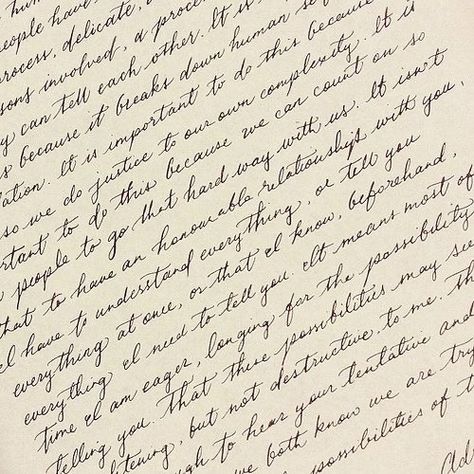 hum
people have
process, delicate,
sons involved, a process
y can tell each other. It is
s because it breaks down human se
lation. It is important to do this because
so we do justice to our own complexity. It is
rtant to do this because we can count on so
people to go that hard way with us. It isn't
that to have an honourable relationships with you,
I have to understand everything, or tell you
everything at once, or that I know, beforehand,
everything I need to tell you. It means most of
time I am eager, longing for the possibility
telling you. That these possibilities may se
htening, but not destructive, to me. Th
gh to hear your tentative and
we both know we are try
possibilities of t
Ad